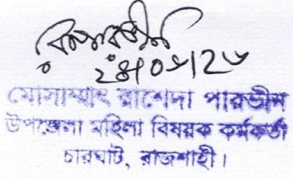 ২৪/০৬/২৬
মোসাম্মাৎ রাশেদা পারভীন
উপজেলা মহিলা বিষয়ক কর্মকর্তা
চারঘাট, রাজশাহী।